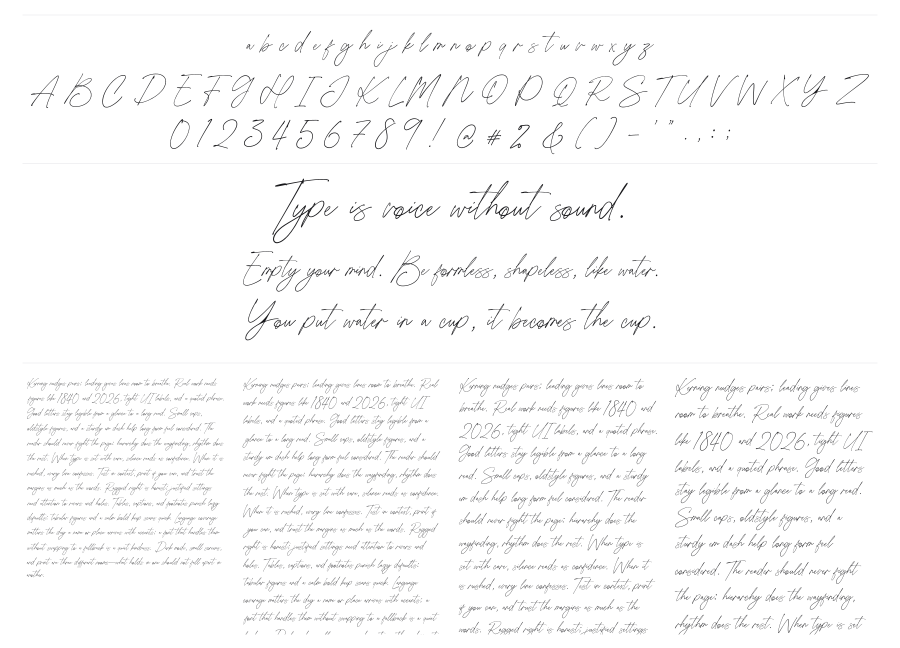 a b c d e f g h i j k l m n o p q r s t u v w x y z
A B C D E F G H I J K L M N O P Q R S T U V W X Y Z
0 1 2 3 4 5 6 7 8 9 ! @ # ? & ( ) - ' " . , : ;
Type is voice without sound.
Empty your mind. Be formless, shapeless, like water.
You put water in a cup, it becomes the cup.
Kerning nudges pairs; leading gives lines room to breathe. Real work needs
figures like 1840 and 2026, tight UI labels, and a quoted phrase.
Good letters stay legible from a glance to a long read. Small caps,
oldstyle figures, and a sturdy em dash help long form feel considered. The
reader should never fight the page: hierarchy does the wayfinding, rhythm does
the rest. When type is set with care, silence reads as confidence. When it is
rushed, every line confesses. Test in context, print if you can, and trust the
margins as much as the words. Ragged right is honest; justified settings
need attention to rivers and holes. Tables, captions, and footnotes punish lazy
defaults: tabular figures and a calm bold keep scores neat. Language coverage
matters the day a name or place arrives with accents: a font that handles them
without swapping to a fallback is a quiet kindness. Dark mode, small screens,
and print are three different rooms—what holds in one should not fall apart in
another.
Kerning nudges pairs; leading gives lines room to breathe. Real
work needs figures like 1840 and 2026, tight UI
labels, and a quoted phrase. Good letters stay legible from a
glance to a long read. Small caps, oldstyle figures, and a
sturdy em dash help long form feel considered. The reader should
never fight the page: hierarchy does the wayfinding, rhythm does
the rest. When type is set with care, silence reads as confidence.
When it is rushed, every line confesses. Test in context, print if
you can, and trust the margins as much as the words. Ragged
right is honest; justified settings need attention to rivers and
holes. Tables, captions, and footnotes punish lazy defaults:
tabular figures and a calm bold keep scores neat. Language
coverage matters the day a name or place arrives with accents: a
font that handles them without swapping to a fallback is a quiet
Kerning nudges pairs; leading gives lines room to
breathe. Real work needs figures like 1840 and
2026, tight UI labels, and a quoted phrase.
Good letters stay legible from a glance to a long
read. Small caps, oldstyle figures, and a sturdy
em dash help long form feel considered. The reader
should never fight the page: hierarchy does the
wayfinding, rhythm does the rest. When type is
set with care, silence reads as confidence. When it
is rushed, every line confesses. Test in context, print
if you can, and trust the margins as much as the
words. Ragged right is honest; justified settings
Kerning nudges pairs; leading gives lines
room to breathe. Real work needs figures
like 1840 and 2026, tight UI
labels, and a quoted phrase. Good letters
stay legible from a glance to a long read.
Small caps, oldstyle figures, and a
sturdy em dash help long form feel
considered. The reader should never fight
the page: hierarchy does the wayfinding,
rhythm does the rest. When type is set